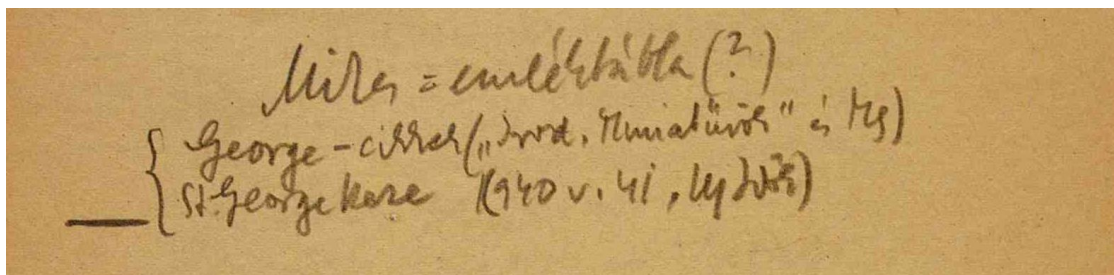 Mikes = emléktábla (?)
George-cikkek („Irod. Miniatűrök" és Mg)
St. George keze (1940 v. 41, Uj Idők)